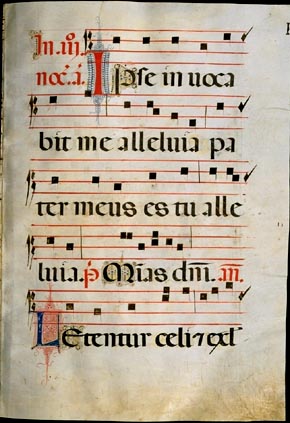 In.
noc̃. Ipse in uoca
bit me alleluia pa
ter meus es tu alle
luia. p̃ Mĩas dm̃. añ.
Letentur celi ⁊ exl